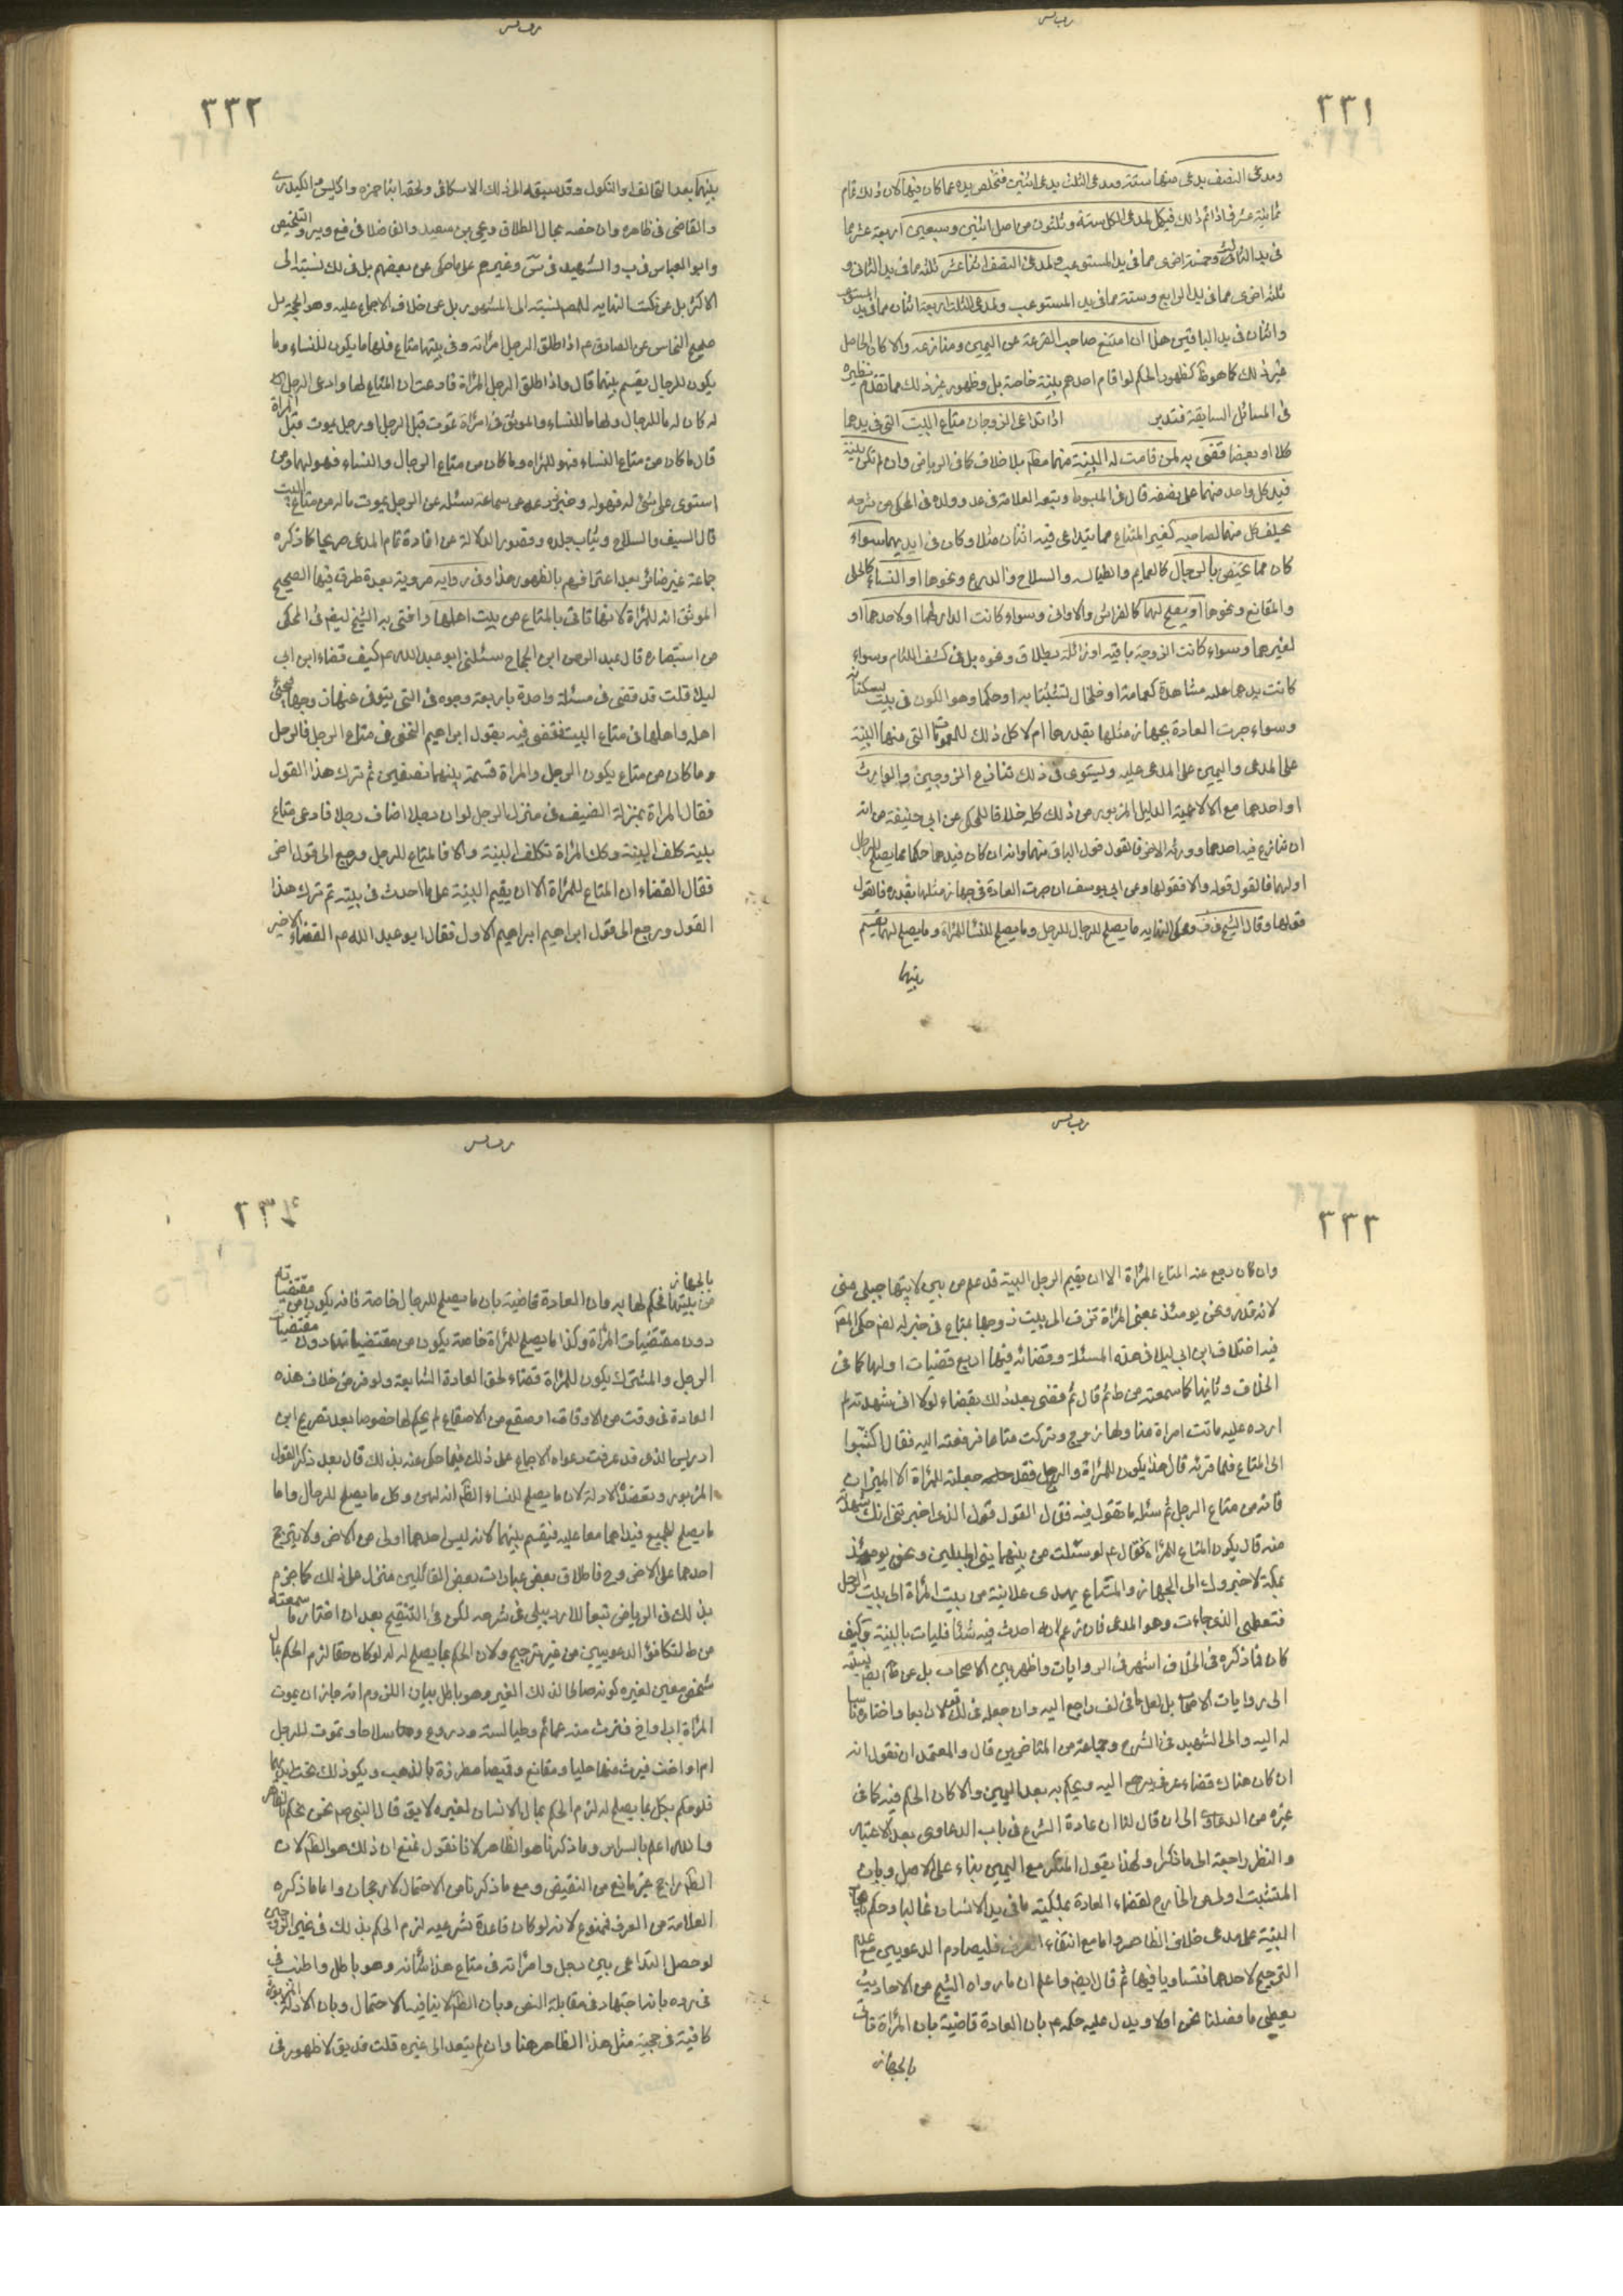 ٣٣١
ومدعى النصف يدعى منها ستة ومدعى الثلث يدعى اثنين فتخلص يده عما كان فيها لان ذلك قام
ثمانية عشر فاذا تم ذلك فيكل لمدعى الكل ستة وثلثون من اصل اثنين وسبعين اربعة عشر مما
في يد الثالث وخمسة اخرى مما في يد المستوعب ولمدعى النصف اثنا عشر ثلثة مما في يد الثانى و
ثلثة اخرى مما في يد الرابع وستة مما في يد المستوعب ولمدعى الثلث اربعة اثنان مما في يد المستوعب
واثنان في يد الباقين هذا ان امتنع صاحب القرعة عن اليمين ومنازعه والا كان الحاصل
غير ذلك كما هو ظ كظهور الحكم لو اقام احدهم بينة خاصة بل وظهور غير ذلك مما تقدم نظيره
في المسائل السابقة فتدبر اذا تداعى الزوجان متاع البيت التى في يدهما
كلا او بعضا قضى به لمن قامت له البينة منهما مطم بلا خلاف كما في الرياض وان لم تكن بينة
فيد كل واحد منهما على نصفه قال في المبسوط وتبعه العلامة في عد وولده في المحكى من شرحه
يحلف كل منهما لصاحبه كغير المتاع مما يتداعى فيه اثنان مثلا وكان في ايديهما سواء
كان مما يختص بالرجال كالعمايم والطيالسه والسلاح والدروع ونحوها او النساء كالحلى
والمقانع ونحوها او يصلح لهما كالفراش والاوانى وسواء كانت الدار لهما او لاحدهما او
لغيرهما وسواء كانت الزوجية باقيه او زائلة بطلاق ونحوه بل في كشف اللثام وسواء
كانت يدهما عليه مشاهدة كعمامة او خلخال تشبثا به او حكما وهو الكون في بيت يسكنانه
وسواء جرت العادة بجهاز مثلها بقدرها ام لا كل ذلك للعمومات التى منها البينة
على المدعى واليمين على المدعى عليه ويستوى في ذلك تنازع الزوجين والوارث
او احدهما مع الاخر لاعمية الدليل المزبور من ذلك كله خلافا للمحكى عن ابى حنيفة من انه
ان تنازع فيه احدهما وورثة الاخر فالقول قول الباقى منهما وانه ان كان فيدهما حكما مما يصلح للرجال
او لهما فالقول قوله والا فقولها وعن ابى يوسف ان جرت العادة في جهاز مثلها بقدره فالقول
قولها وقال الشيخ في ف ومحكى النهايه ما يصلح للرجال للرجل وما يصلح للنساء للمراة وما يصلح لهما يقسم
بينهما
٣٣٢
بينهما بعد التحالف او النكول وقد سبقه الى ذلك الاسكافى ولحقه ابنا حمزه وادريس والكيدرى
والقاضى في ظاهره وان خصه بحال الطلاق ويحيى بن سعيد والفاضلان في فع وير والتلخيص
وابو العباس في ب والشهيد في س وغيرهم على ما حكى عن بعضهم بل في لك نسبته الى
الاكثر بل عن نكت النهايه للمصـ نسبته الى المشهور بل عن خلاف الاجماع عليه وهو الحجة بل
صحيح النخاس عن الصادق ع اذا طلق الرجل امراته وفي بيتها متاع فلها ما يكون للنساء وما
يكون للرجال يقسم بينهما قال واذا طلق الرجل المراة فادعت ان المتاع لها وادعى الرجل انه
له كان له ما للرجال ولها ما للنساء والموثق في امراة تموت قبل الرجل او رجل يموت قبل المراة
قال ما كان من متاع النساء فهو للمراة وما كان من متاع الرجال والنساء فهو لهما ومن
استوى على شئ له فهو له وخبر زرعه عن سماعة سئله عن الرجل يموت ماله من متاع البيت
قال السيف والسلاح وثياب جلده وقصور الدلالة عن افادة تمام المدعى صريحا كما ذكره
جماعة غير ضائر بعد اعترافهم بالظهور هذا وفي رواية مروية بعدة طرق فيها الصحيح
الموثق انه للمراة لانها تاتى بالمتاع من بيت اهلها وافتى به الشيخ ايضم في المحكى
من استبصاره قال عبد الرحمن ابن الحجاج سئلنى ابو عبد الله ع كيف قضاء ابن ابى
ليلا قلت قد قضى في مسئلة واحدة باربعة وجوه في التى يتوفى عنها زوجها فيجئ
اهله واهلها في متاع البيت فقضى فيه بقول ابراهيم النخعى في متاع الرجل فالرجل
وما كان من متاع يكون الرجل والمراة قسمه بينهما نصفين ثم ترك هذا القول
فقال المراة بمنزلة الضيف في منزل الرجل لو ان رجلا اضاف رجلا فادعى متاع
بيته كلف البينة وكك المراة تكلف البينة والا فالمتاع للرجل ورجع الى قول اخر
فقال القضاء ان المتاع للمراة الا ان يقيم البينة على ما احدث في بيته ثم ترك هذا
القول ورجع الى قول ابراهيم ابراهيم الاول فقال ابو عبد الله ع القضاء الاخير
٣٣٣
وان كان رجع عنه المتاع المراة الا ان يقيم الرجل البينة قد علم من بين لابيتها جبلى منى
لانه قال ونحن يومئذ بمنى المراة تزف الى بيت زوجها بمتاع في خبر له ايضم حكى المقم
فيه اختلاف ابن ابى ليلا في هذه المسئلة وقضائه فيها اربع قضيات اولها كما في
الخلاف وثانيها كما سمعته من ط ثم قال ثم قضى بعد ذلك بقضاء لولا انى شهدته لم
ارده عليه ماتت امراة منا ولها زوج وتركت متاعا فرفعته اليه فقال اكتبوا
الى المتاع فلما قرئه قال هذا يكون للمراة والرجل فقد جعلته للمراة الا الميزان
فانه من متاع الرجل ثم سئله ما تقول فيه فقال القول قول الذى اخبرتنى انك شهدته
منه قال يكون المتاع للمراة فقال ع لو سئلت من بينهما يعنى الجبلين ونحن يومئذ
بمكة لاخبروك الى الجهاز والمتاع يهدى علانية من بيت المراة الى بيت الرجل
فتعطى الذى جاءت وهو المدعى فان زعم انه احدث فيه شئا فليات بالبينة وكيف
كان فما ذكره في الخلاف اشهر في الروايات واظهر بين الاصحاب بل عن ف ايضم نسبته
الى روايات الاصحاب بل لعل ما في لف راجع اليه وان جعله في لك قولا رابعا واختاره ناسبا
له اليه والى الشهيد في الشرح وجماعة من المتاخرين قال والمعتمد ان نقول انه
ان كان هناك قضاء عرفى يرجع اليه ويحكم به بعد اليمين والا كان الحكم فيه كما في
غيره من الدعاوى الى ان قال لنا ان عادة الشرع في باب الدعاوى بعد الاعتبار
والنظر راجعة الى ما ذكرنا ولهذا يقول المنكر مع اليمين بناء على الاصل وبان
المتشبث اولى من الخارج لقضاء العادة بملكيته ما في يد الانسان غالبا وحكم بايجاب
البينة على مدعى خلاف الظاهر واما مع انتفاء العرف فليصادم الدعويين مع عدم
الترجيح لاحدهما فتساويا فيها ثم قال ايضم واعلم ان ما رواه الشيخ من الاحاديث
يعطى ما فصلنا نحن اولا ويدل عليه حكمه ع بان العادة قاضية بان المراة تاتى
بالجهاز
٣٣٤
بالجهاز من بيتها فحكم لها به وان العادة قاضية بان ما يصلح للرجال خاصة فانه يكون من مقتضياته
دون مقتضيات المراة وكذا ما يصلح للمراة خاصة يكون من مقتضياتها دون مقتضيات
الرجل والمشترك يكون للمراة قضاء لحق العادة الشايعة ولو فرض خلاف هذه
العادة في وقت من الاوقات او صقع من الاصقاع لم يحكم لها خصوصا بعد تصريح ابن
ادريس الذى قد عرفت دعواه الاجماع على ذلك فيما حكى عنه بذلك قال بعد ذكر القول
المزبور وتعضده الادلة لان ما يصلح للنساء الظم انه لهن وكل ما يصلح للرجال واما
ما يصلح للجميع فيداهما معا عليه فيقسم بينهما لانه ليس احدهما اولى من الاخر ولا يترجح
احدهما على الاخر وح فاطلاق بعض عبارات بعض القائلين منزل على ذلك كما جزم
بذلك في الرياض تبعا للاردبيلى في شرحه لكن في التنقيح بعد ان اختار ما سمعته
من ط لتكافؤ الدعويين من غير ترجيح ولان الحكم بما يصلح له له لو كان حقا لزم الحكم بمال
شخص معين لغيره كونه صالحا لذلك الغير وهو باطل بيان اللزوم انه جاز ان يموت
للمراة اب او اخ فترث منه عمائم وطيالسة ودروع وسلاحا وتموت للرجل
ام او اخت فيرث منها حليا ومقانع وقيصا مطرزة بالذهب ويكون ذلك تحت ايديهما
فلو حكم بكل بما يصلح له لزم الحكم بمال الانسان لغيره لا يق قال النبى ص نحن نحكم بالظاهر
والله اعلم بالسراير وما ذكرناه هو الظاهر لانا نقول نمنع ان ذلك هو الظم لان
الظم راجح غير مانع من النقيض ومع ما ذكرنا من الاحتمال لا رجحان واما ما ذكره
العلامة من العرف فممنوع لانه لو كان قاعدة شرعيه لزم الحكم بذلك في غير الزوجين
لو حصل التداعى بين رجل وامراته في متاع هذا شانه وهو باطل واطنب في
في رده بانه اجتهاد في مقابلة النص وبان الظم لا ينافيه الاحتمال وبان الادلة المزبورة
كافية في حجية مثل هذا الظاهر هنا وان لم يتعد الى غيره قلت قد يق لا ظهور في